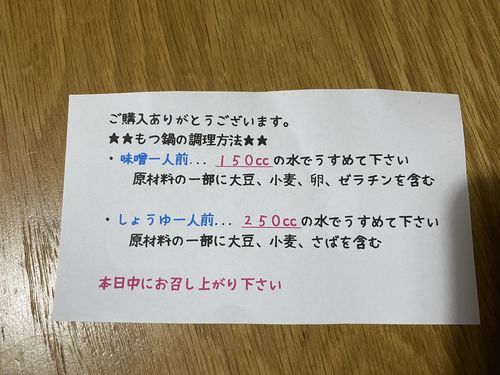 ご購入ありがとうございます。
★★もつ鍋の調理方法★★
・味噌一人前... 150ccの水でうすめて下さい
原材料の一部に大豆、小麦、卵、ゼラチンを含む
・しょうゆ一人前... 250ccの水でうすめて下さい
原材料の一部に大豆、小麦、さばを含む
本日中にお召し上がり下さい